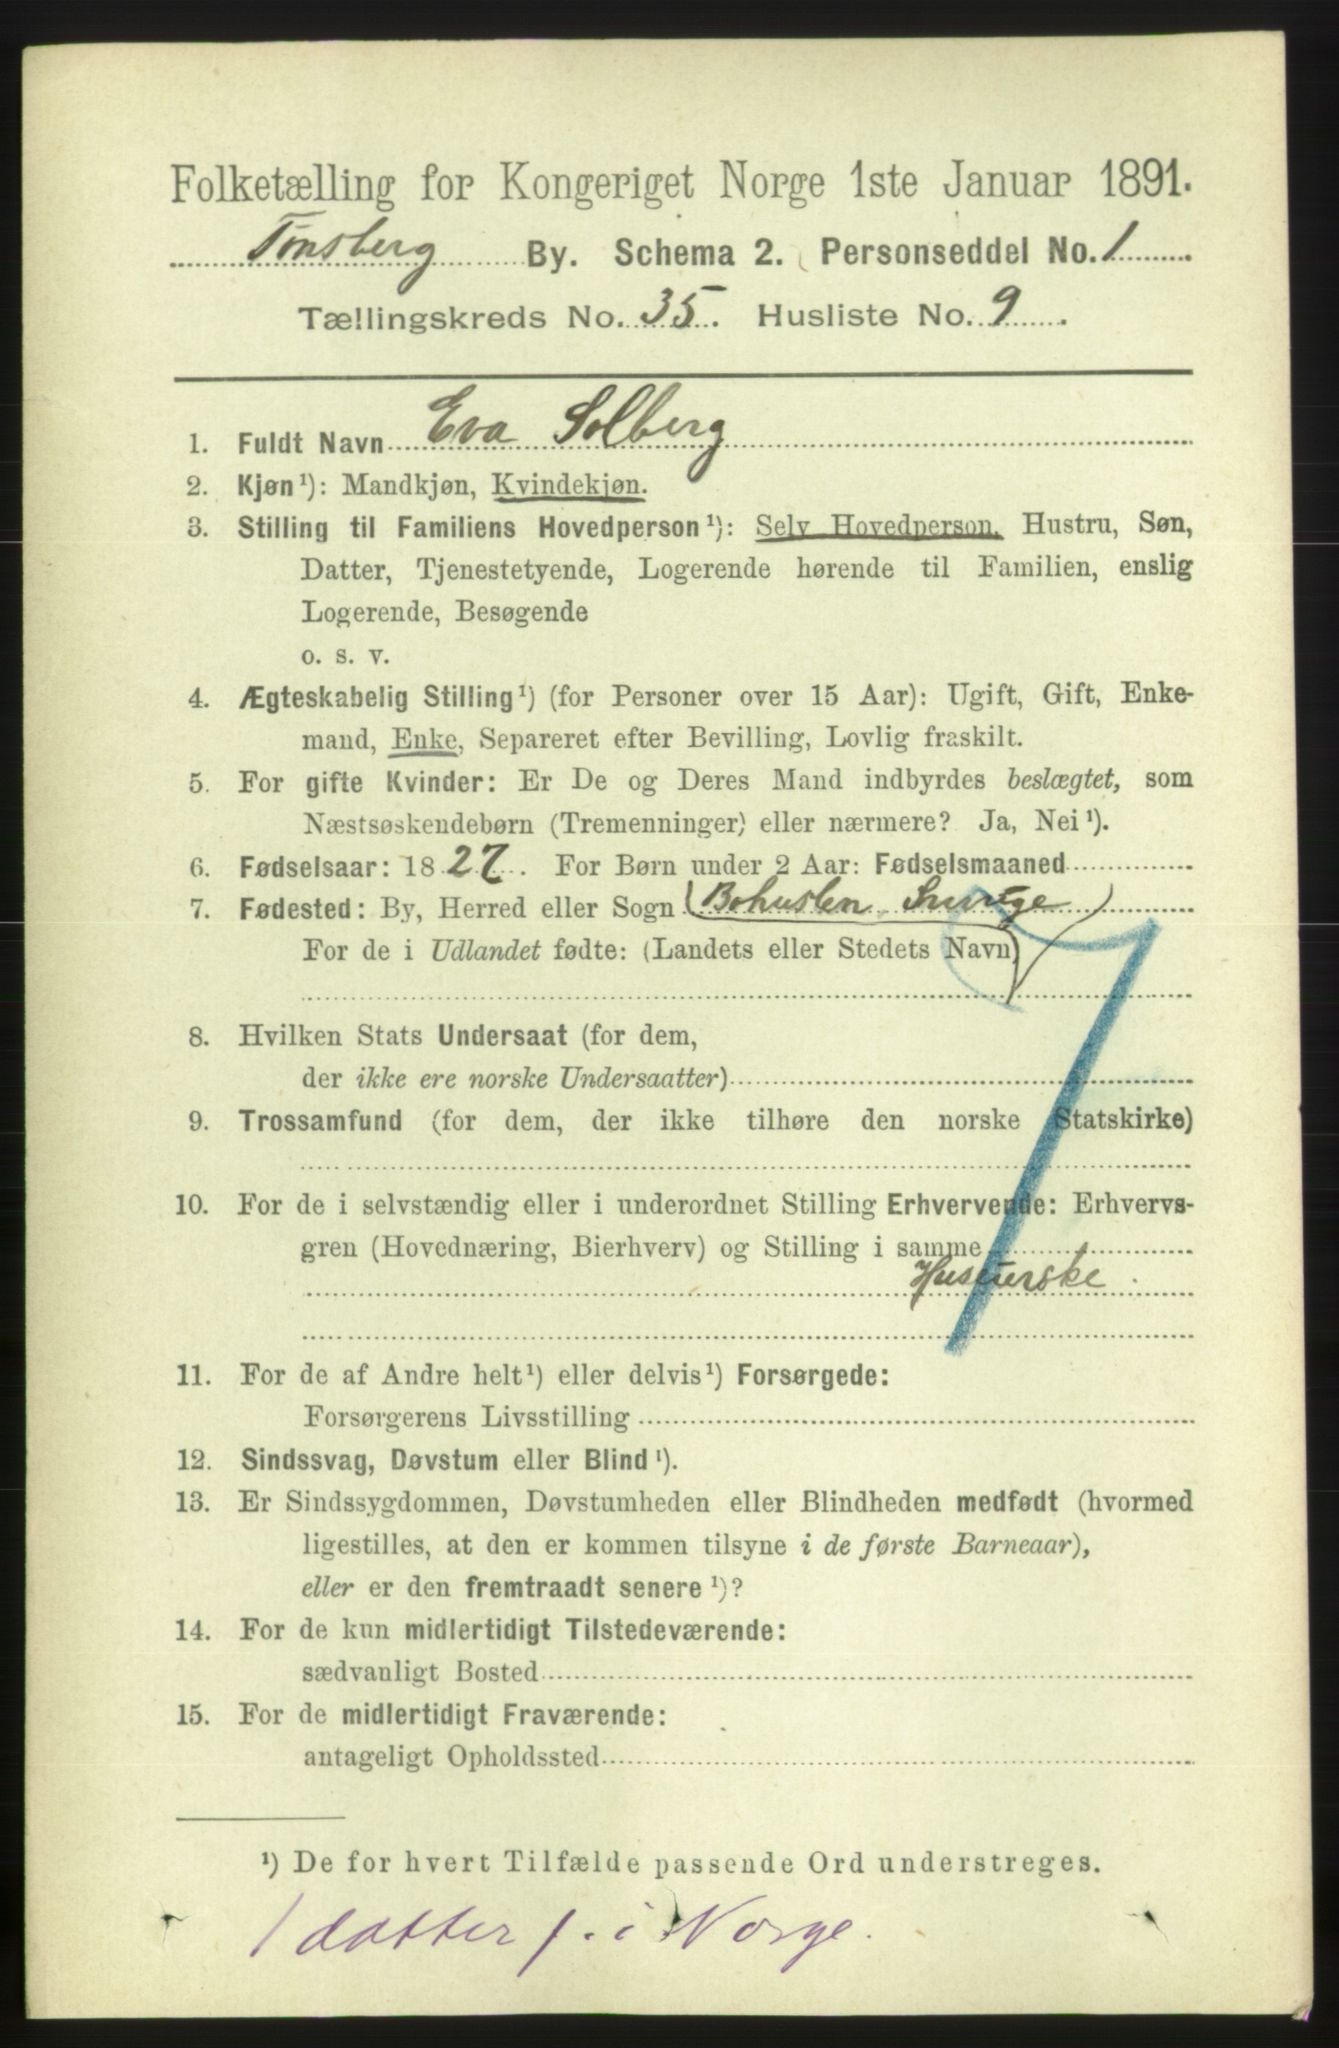 Folketælling for Kongeriget Norge 1ste Januar 1891.
Tønsberg By. Schema 2. Personseddel No. 1
Tællingskreds No. 35. Husliste No. 9
1. Fuldt Navn Eva Solberg
2. Kjøn¹): Mandkjøn, Kvindekjøn.
3. Stilling til Familiens Hovedperson¹): Selv Hovedperson, Hustru, Søn,
Datter, Tjenestetyende, Logerende hørende til Familien, enslig
Logerende, Besøgende
o. s. v.
4. Ægteskabelig Stilling¹) (for Personer over 15 Aar): Ugift, Gift, Enke-
mand, Enke, Separeret efter Bevilling, Lovlig fraskilt.
5. For gifte Kvinder: Er De og Deres Mand indbyrdes beslægtet, som
Næstsøskendebørn (Tremenninger) eller nærmere? Ja, Nei¹).
6. Fødselsaar: 1827. For Børn under 2 Aar: Fødselsmaaned
7. Fødested: By, Herred eller Sogn (Bohuslen Sverige)
For de i Udlandet fødte: (Landets eller Stedets Navn)
8. Hvilken Stats Undersaat (for dem,
der ikke ere norske Undersaatter)
9. Trossamfund (for dem, der ikke tilhøre den norske Statskirke)
10. For de i selvstændig eller i underordnet Stilling Erhvervende: Erhvervs-
gren (Hovednæring, Bierhverv) og Stilling i samme
Huseierske.
11. For de af Andre helt¹) eller delvis¹) Forsørgede:
Forsørgerens Livsstilling
12. Sindssvag, Døvstum eller Blind¹).
13. Er Sindssygdommen, Døvstumheden eller Blindheden medfødt (hvormed
ligestilles, at den er kommen tilsyne i de første Barneaar),
eller er den fremtraadt senere¹)?
14. For de kun midlertidigt Tilstedeværende:
sædvanligt Bosted
15. For de midlertidigt Fraværende:
antageligt Opholdssted
¹) De for hvert Tilfælde passende Ord understreges.
1 datter f. i Norge.